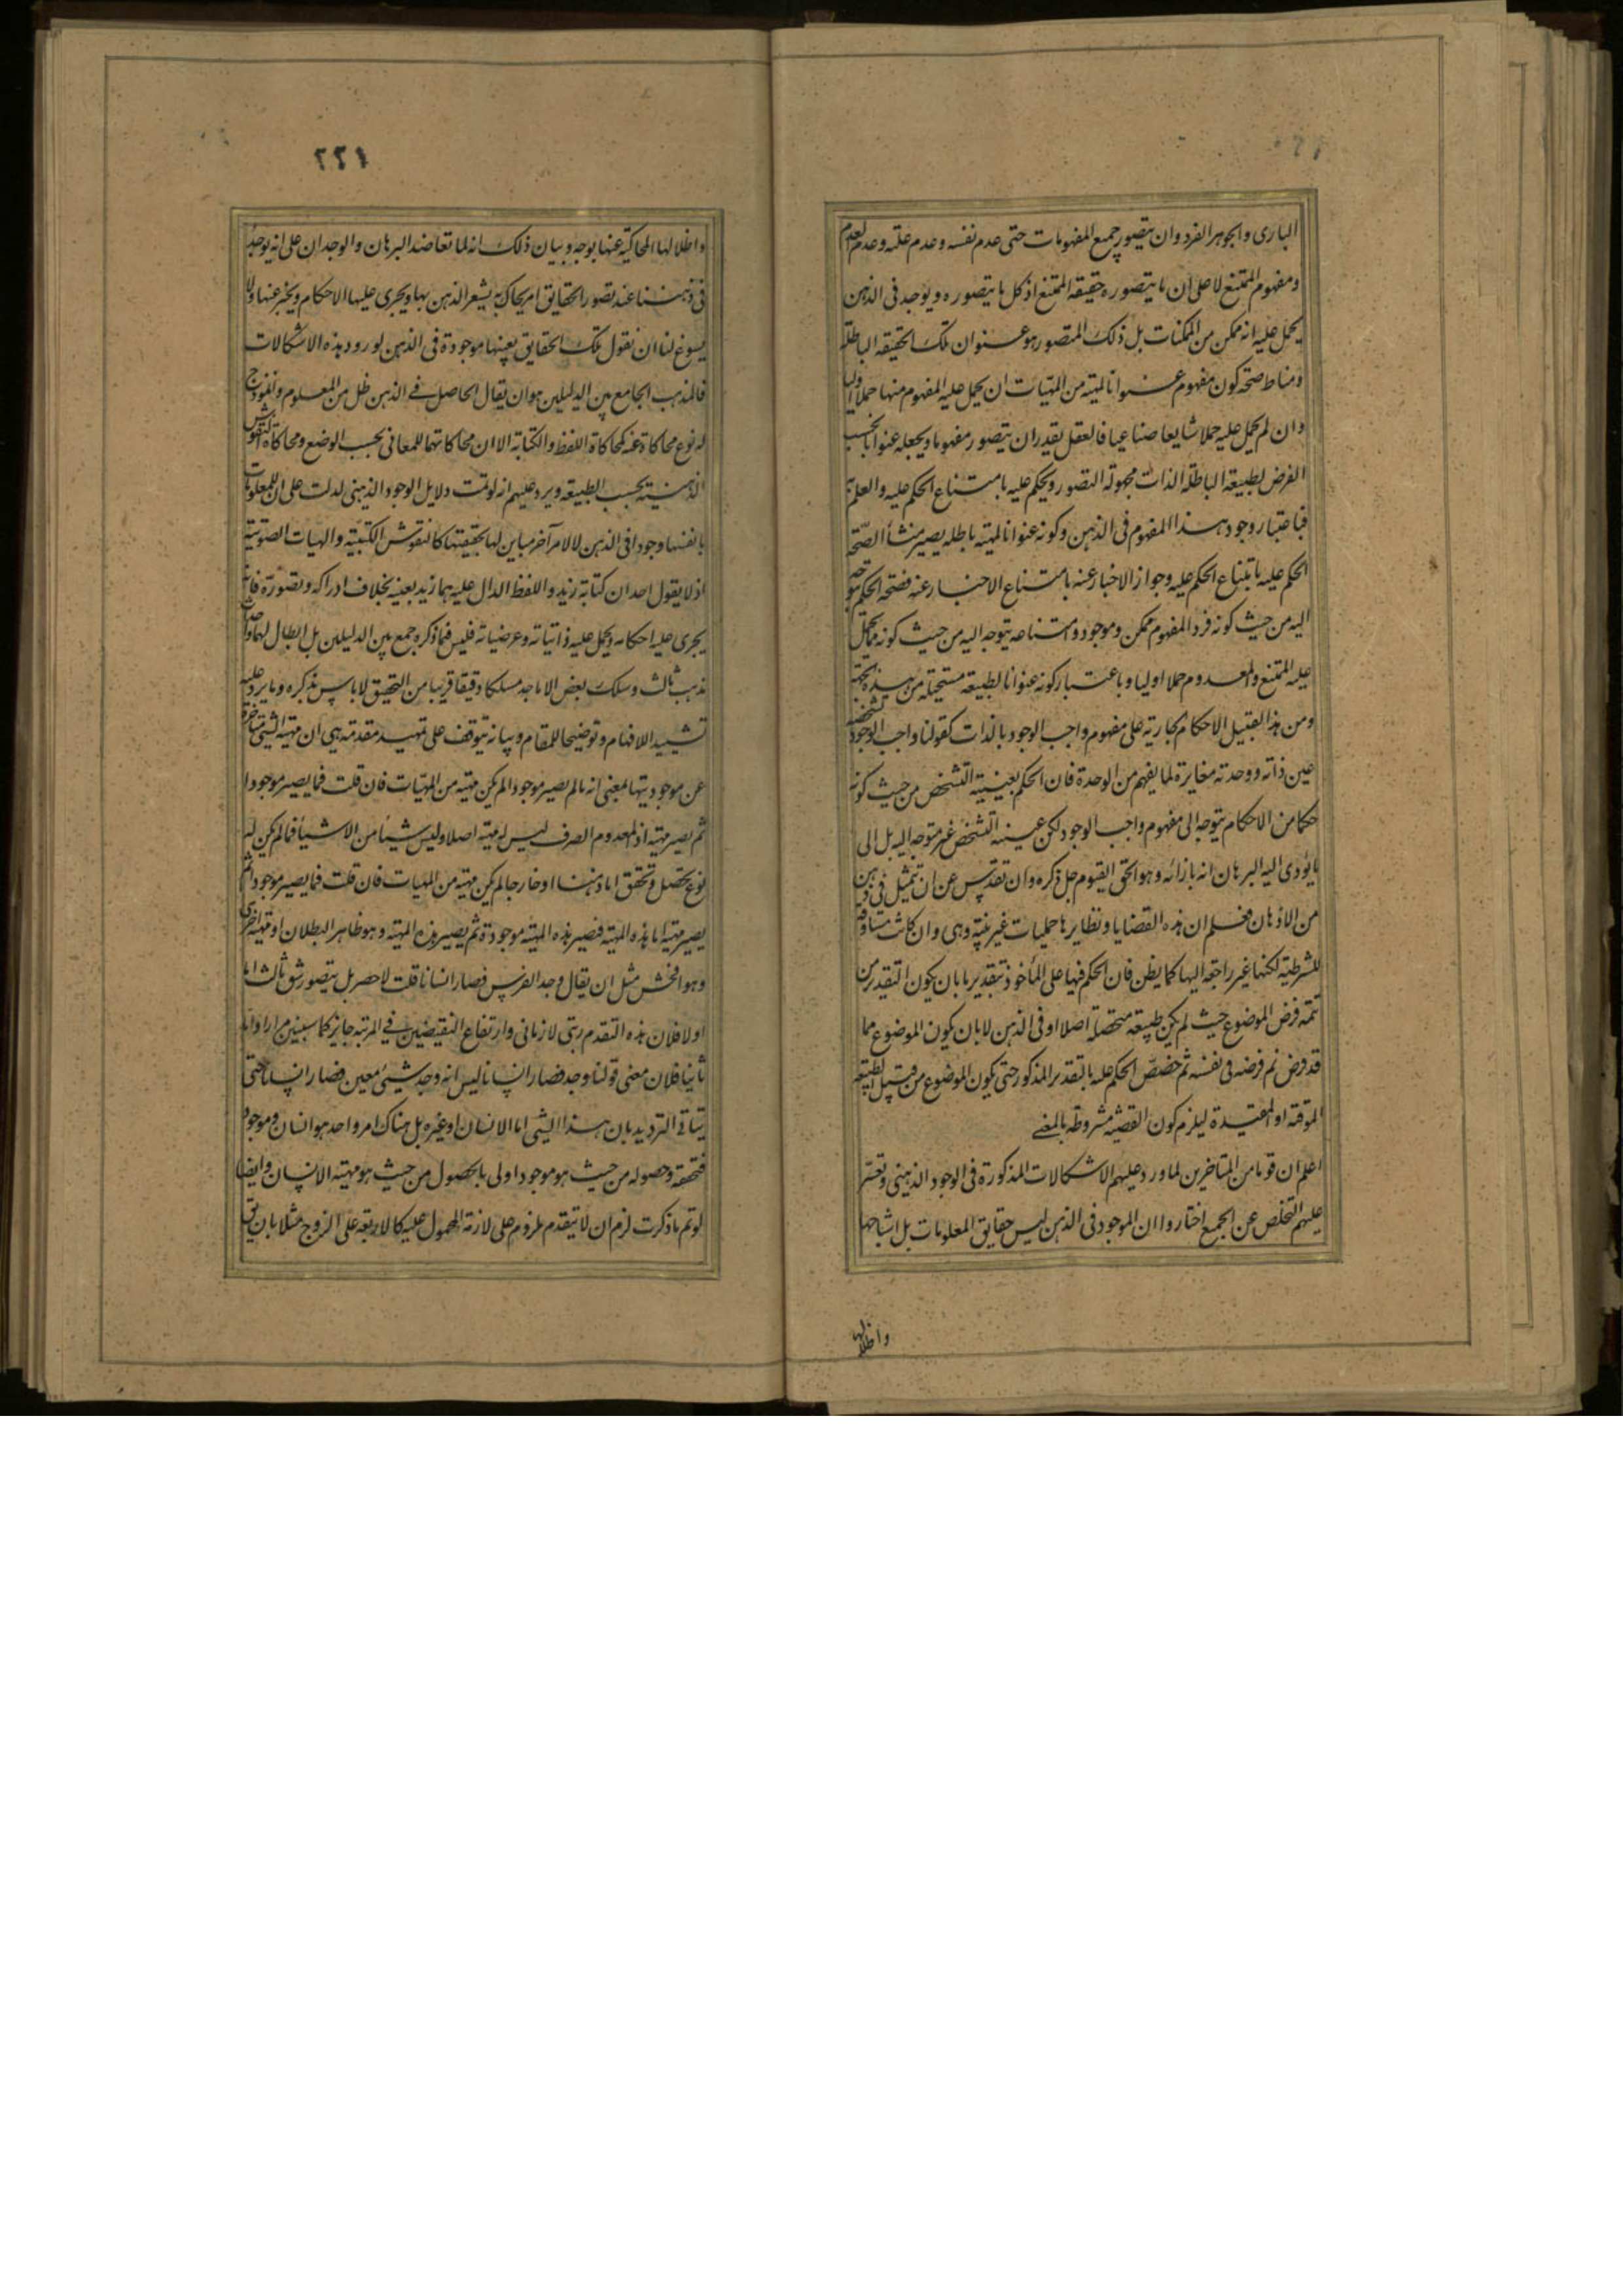 الباری والجوهر الفرد وان يتصور جميع المفهومات حتى عدم نفسه وعدم علته وعدم العدم
ومفهوم الممتنع لا على ان ما يتصوره حقيقة الممتنع اذ كل ما يتصوره ويوجد فى الذهن
يحمل عليه انه ممكن من الممكنات بل ذلك المتصور هو عنوان تلك الحقيقة الباطلة
ومناط صحة كون مفهوم عنوانا لمهية من المهيات ان يحمل عليه المفهوم منها حملا اوليا
وان لم يحمل عليه حملا شايعا صناعيا فالعقل يقدر ان يتصور مفهوما ويجعله عنوانا بحسب
الفرض لطبيعة الباطلة الذات مجهولة التصور ويحكم عليه بامتناع الحكم عليه والعلم به
فباعتبار وجود هذا المفهوم فى الذهن وكونه عنوانا لمهية باطلة يصير منشأ الصحة
الحكم عليه بامتناع الحكم عليه وجواز الاخبار عنه بامتناع الاخبار عنه فصحة الحكم يتوجه
اليه من حيث كونه فرد المفهوم ممكن وموجود وامتناعه يتوجه اليه من حيث كونه مما يحمل
عليه الممتنع والمعدوم حملا اوليا وباعتبار كونه عنوانا لطبيعة مستحيلة من هذه الجهة
ومن هذا القبيل الاحكام الجارية على مفهوم واجب الوجود بالذات كقولنا واجب الوجود تشخصه
عين ذاته ووحدته مغايرة لما يفهم من الوحدة فان الحكم بعينية التشخص من حيث كونه
حكما من الاحكام يتوجه الى مفهوم واجب الوجود لكن عينية التشخص غير متوجه اليه بل الى
ما يؤدى اليه البرهان انه بازائه وهو الحق القيوم جل ذكره وان تقدس عن ان يتمثل فى ذهن
من الاذهان فعلم ان هذه القضايا ونظايرها حمليات غير بتية وهى وان كانت مساوقة
للشرطية لكنها غير راجعة اليها كما يظن فان الحكم فيها على المأخوذ بتقدير ما بان يكون التقدير من
تتمة فرض الموضوع حيث لم يكن طبيعة متحصلة اصلا او فى الذهن لا بان يكون الموضوع مما
قد فرض ثم فرضه فى نفسه ثم خصص الحكم عليه بالتقدير المذكور حتى يكون الموضوع من قبيل الطبيعة
الموقتة او المقيدة ليلزم كون القضية مشروطة بالمعنى
اعلم ان قوما من المتاخرين لما ورد عليهم الاشكالات المذكورة فى الوجود الذهنى وتعسر
عليهم التخلص عن الجميع اختاروا ان الموجود فى الذهن ليس حقايق المعلومات بل اشباحها
واظلالها
٢٢١
واظلالها المحاكية عنها بوجه وبيان ذلك انه لما تعاضد البرهان والوجدان على انه يوجد
فى ذهننا عند تصور الحقايق امر يحاكى به يشعر الذهن بها ويجرى عليها الاحكام ويخبر عنها ولا
يسوغ لنا ان نقول تلك الحقايق بعينها موجودة فى الذهن لورود هذه الاشكالات
فالمذهب الجامع بين الدليلين هو ان يقال الحاصل فى الذهن ظل من المعلوم وانموذج
له نوع محاكاة عنه كمحاكاة اللفظ والكتابة الا ان محاكاتهما للمعانى بحسب الوضع ومحاكاة النقوش
الذهنية بحسب الطبيعة ويرد عليهم انه لو تمت دلايل الوجود الذهنى لدلت على ان للمعلومات
بانفسها وجودا فى الذهن لا لامر آخر مباين لها بحقيقتها كالنقوش الكتبية والهيات الصوتية
اذ لا يقول احد ان كتابة زيد واللفظ الدال عليه هما زيد بعينه بخلاف ادراكه وتصوره فانه
يجرى عليه احكامه ويحمل عليه ذاتياته وعرضياته فليس فيما ذكره جمع بين الدليلين بل ابطال لهما واحداث
مذهب ثالث وسلك بعض الاماجد مسلكا دقيقا قريبا من التحقيق لا باس بذكره وما يرد عليه
تشييدا للافهام وتوضيحا للمقام وبيانه يتوقف على تمهيد مقدمة هى ان مهية الشىء متاخرة
عن موجوديتها بمعنى انه ما لم يصير موجودا لم يكن مهية من المهيات فان قلت فما يصير موجودا
ثم يصير مهية اذ المعدوم الصرف ليس له مهية اصلا وليس شيئا من الاشياء فما لم يكن له
نوع تحصل وتحقق اما ذهنا او خارجا لم يكن مهية من المهيات فان قلت فما يصير موجودا ثم
يصير مهية اما هذه المهية فتصير هذه المهية موجودة ثم يصير هذه المهية وهو ظاهر البطلان او مهية اخرى
وهو افحش مثل ان يقال وجد الفرس فصار انسانا قلت لا حصر بل يتصور شق ثالث اما
اولا فلان هذه التقدم رتبى لا زمانى وارتفاع النقيضين فى المرتبة جايز كما سيبين مرارا واما
ثانيا فلان معنى قولنا وجد فصار انسانا ليس انه وجد شىء معين فصار انسانا حتى
يتاتى الترديد بان هذا الشى اما الانسان او غيره بل هناك امر واحد هو انسان وموجود
فتحققه وحصوله من حيث هو موجود اولى بالحصول من حيث هو مهية الانسان وايضا
لو تم ما ذكرت لزم ان لا يتقدم ملزوم على لازمه المحمول عليه كالاربعة على الزوج مثلا بان يق